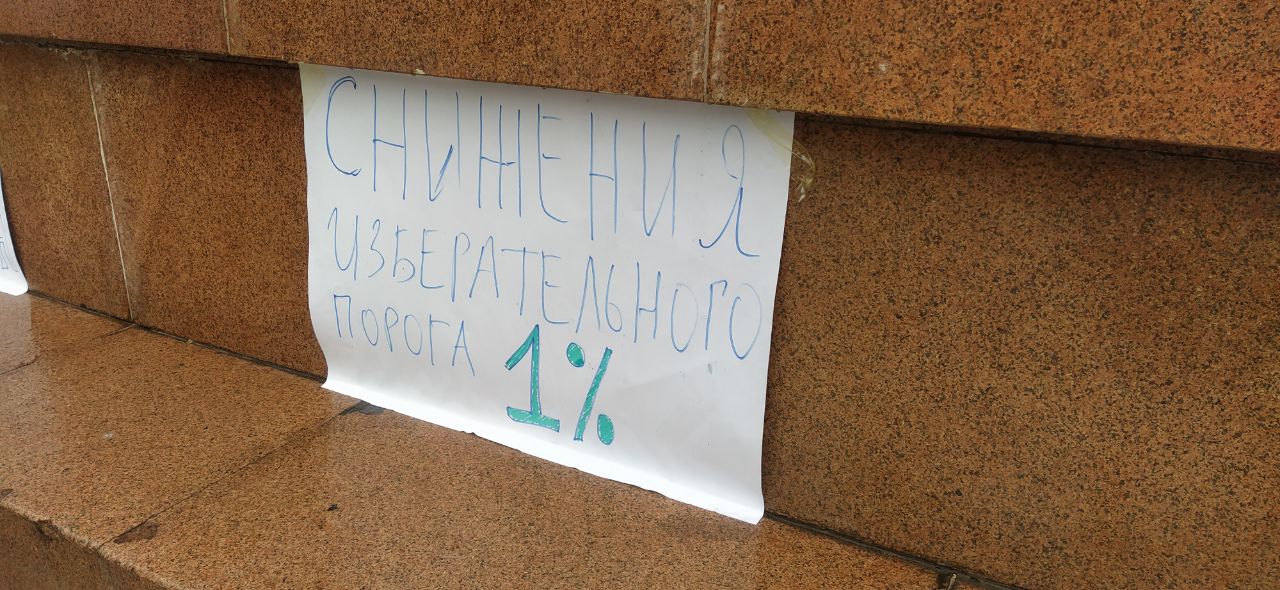 СНИЖЕНИЯ
ИЗБЕРАТЕЛЬНОГО
ПОРОГА 1%